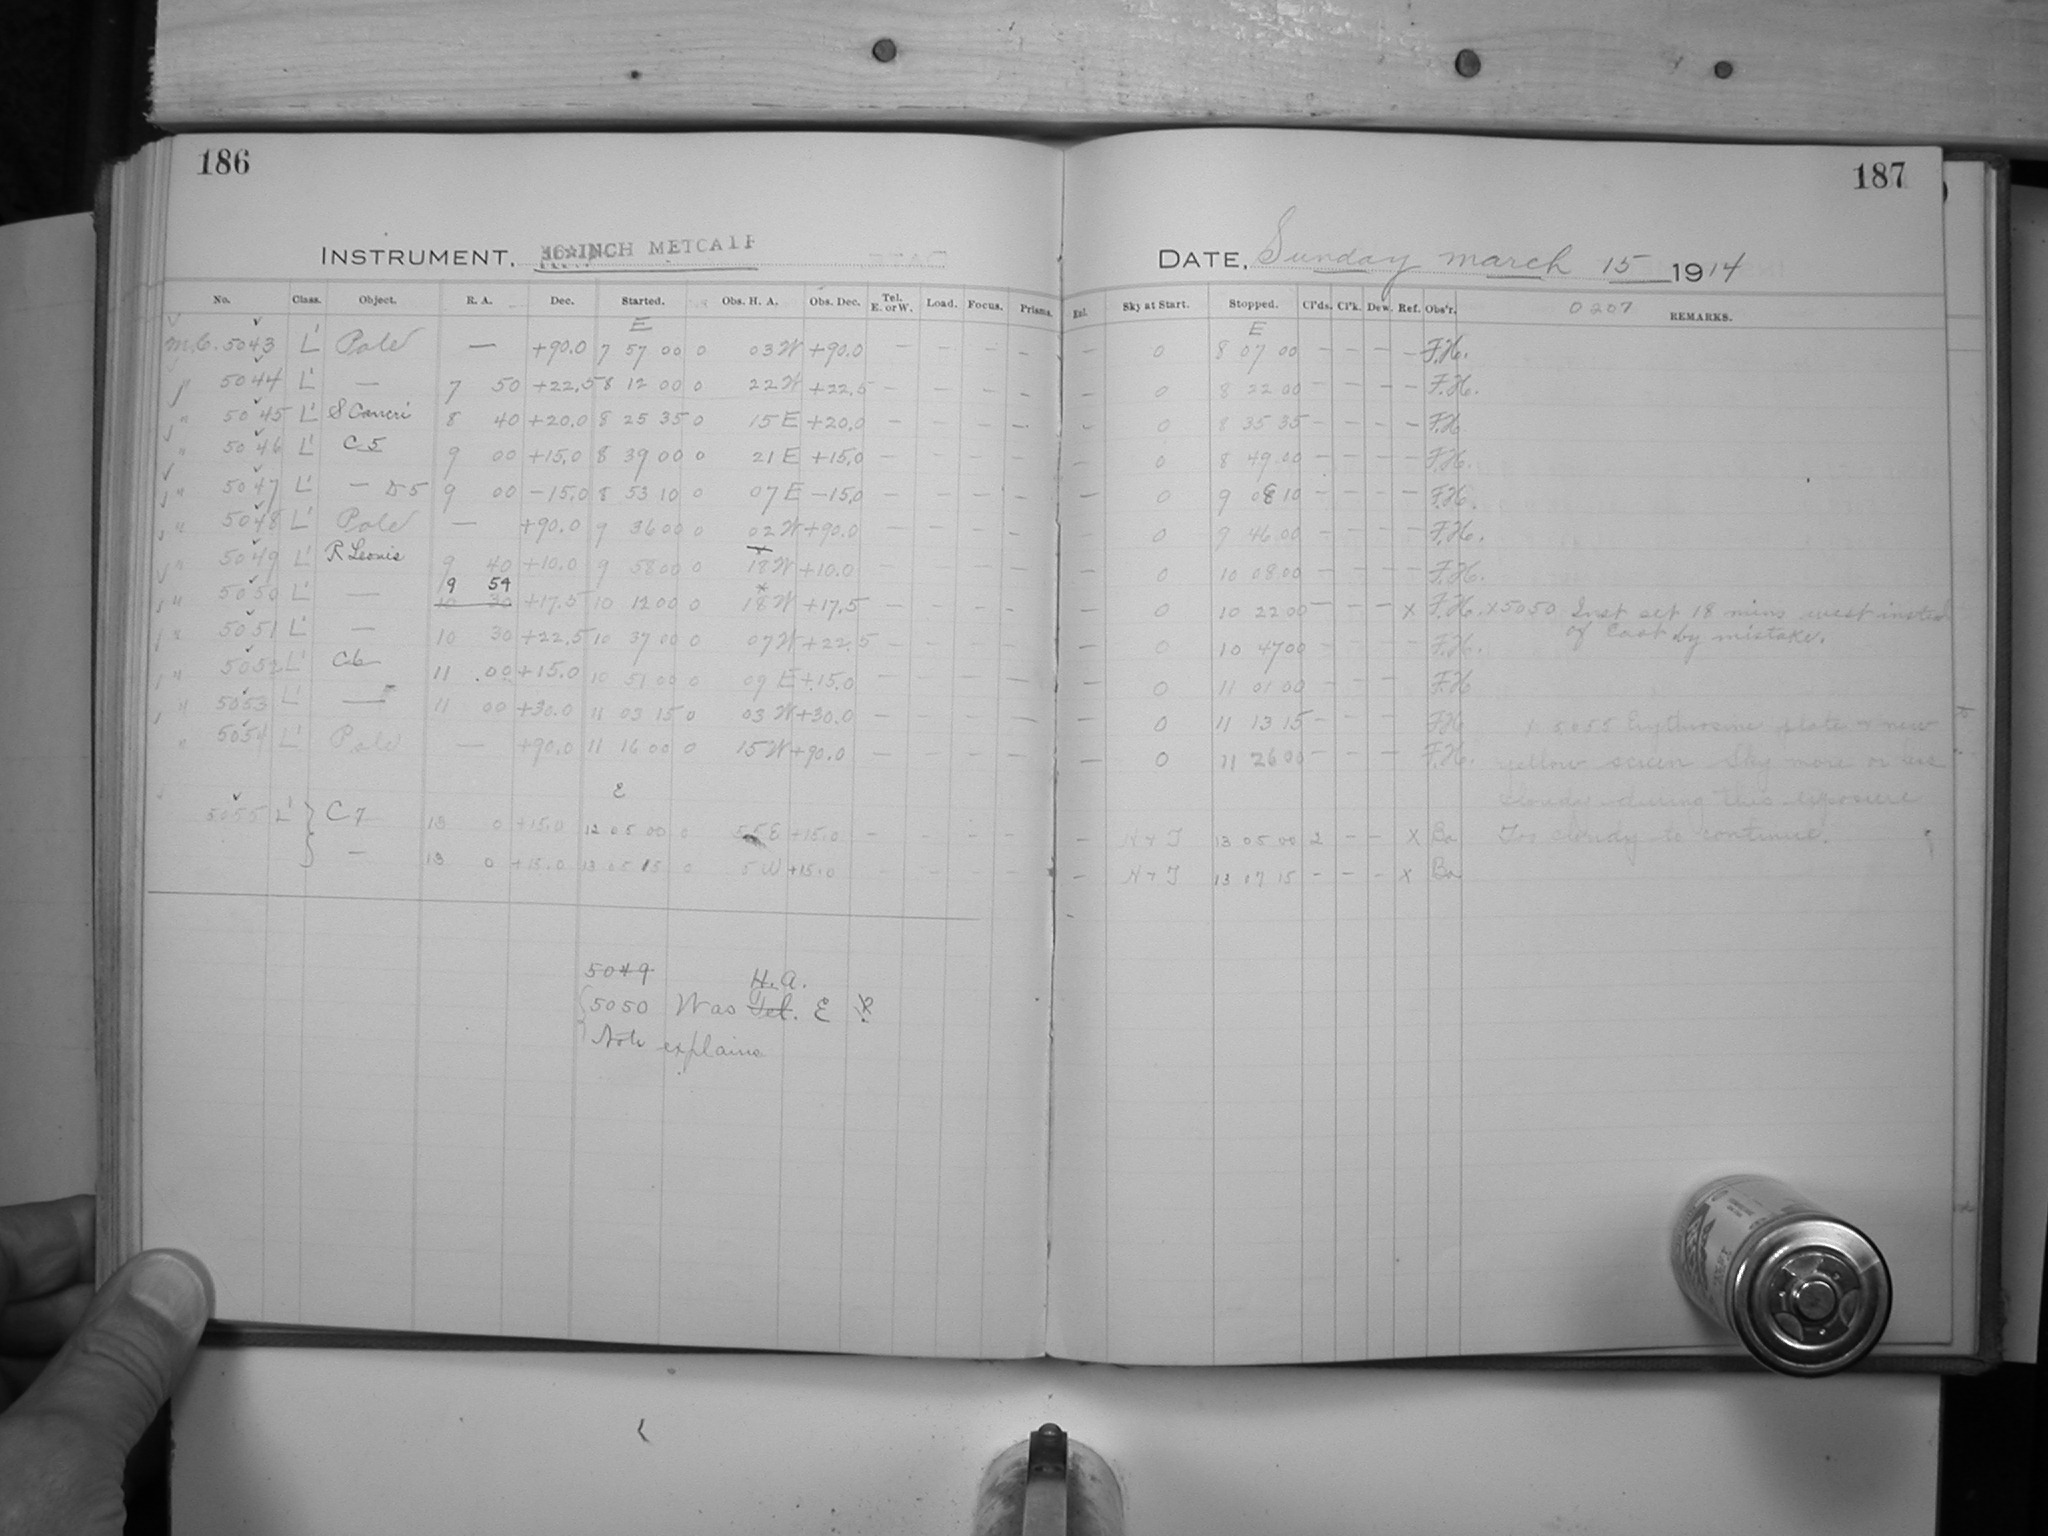 186
INSTRUMENT. 16-INCH METCALF
No. Class. Object. R. A. Dec. Started. Obs. H. A. Obs. Dec. Tel. E. or W. Load. Focus. Prisms.
E
M.C. 5043 L' Pole — +90.0 7 57 00 0 03 W +90.0 — — — —
" 5044 L' — 7 50 +22.5 8 12 00 0 22 W +22.5 — — — —
" 5045 L' S Cancri 8 40 +20.0 8 25 35 0 15 E +20.0 — — — —
" 5046 L' C 5 9 00 +15.0 8 39 00 0 21 E +15.0 — — — —
" 5047 L' — D5 9 00 −15.0 8 53 10 0 07 E −15.0 — — — —
" 5048 L' Pole — +90.0 9 36 00 0 02 W +90.0 — — — —
" 5049 L' R Leonis 9 40 +10.0 9 58 00 0 18 W +10.0 — — — —
9 54
" 5050 L' — 10 30 +17.5 10 12 00 0 18 W +17.5 — — — —
" 5051 L' — 10 30 +22.5 10 37 00 0 07 W +22.5 — — — —
" 5052 L' C6 11 00 +15.0 10 51 00 0 09 E +15.0 — — — —
" 5053 L' — 11 00 +30.0 11 03 15 0 03 W +30.0 — — — —
" 5054 L' Pole — +90.0 11 16 00 0 15 W +90.0 — — — —
E
5055 L' C 7 13 0 +15.0 12 05 00 0 55 E +15.0 - - - -
— 13 0 +15.0 13 05 15 0 5 W +15.0 - - - -
5049
H.A.
5050 Was Tel. E
Note explains
187
DATE, Sunday March 15 1914
Ext. Sky at Start. Stopped. Cl'ds. Cl'k. Dew. Ref. Obs'r. 0207 REMARKS.
E
— 0 8 07 00 — — — — F.H.
— 0 8 22 00 — — — — F.H.
— 0 8 35 35 — — — — F.H.
— 0 8 49 00 — — — — F.H.
— 0 9 08 10 — — — — F.H.
— 0 9 46 00 — — — — F.H.
— 0 10 08 00 — — — — F.H.
— 0 10 22 00 — — — x F.H. x5050 Inst set 18 mins west instead
of East by mistake.
— 0 10 47 00 — — — — F.H.
— 0 11 01 00 — — — F.H.
— 0 11 13 15 — — — F.H.
x 5055 Erythrosine plate & new
— 0 11 26 00 — — — F.H. yellow screen Sky more or less
cloudy during this exposure
— H+T 13 05 00 2 — — x Bo Too cloudy to continue.
— H+T 13 07 15 — — — x Bo